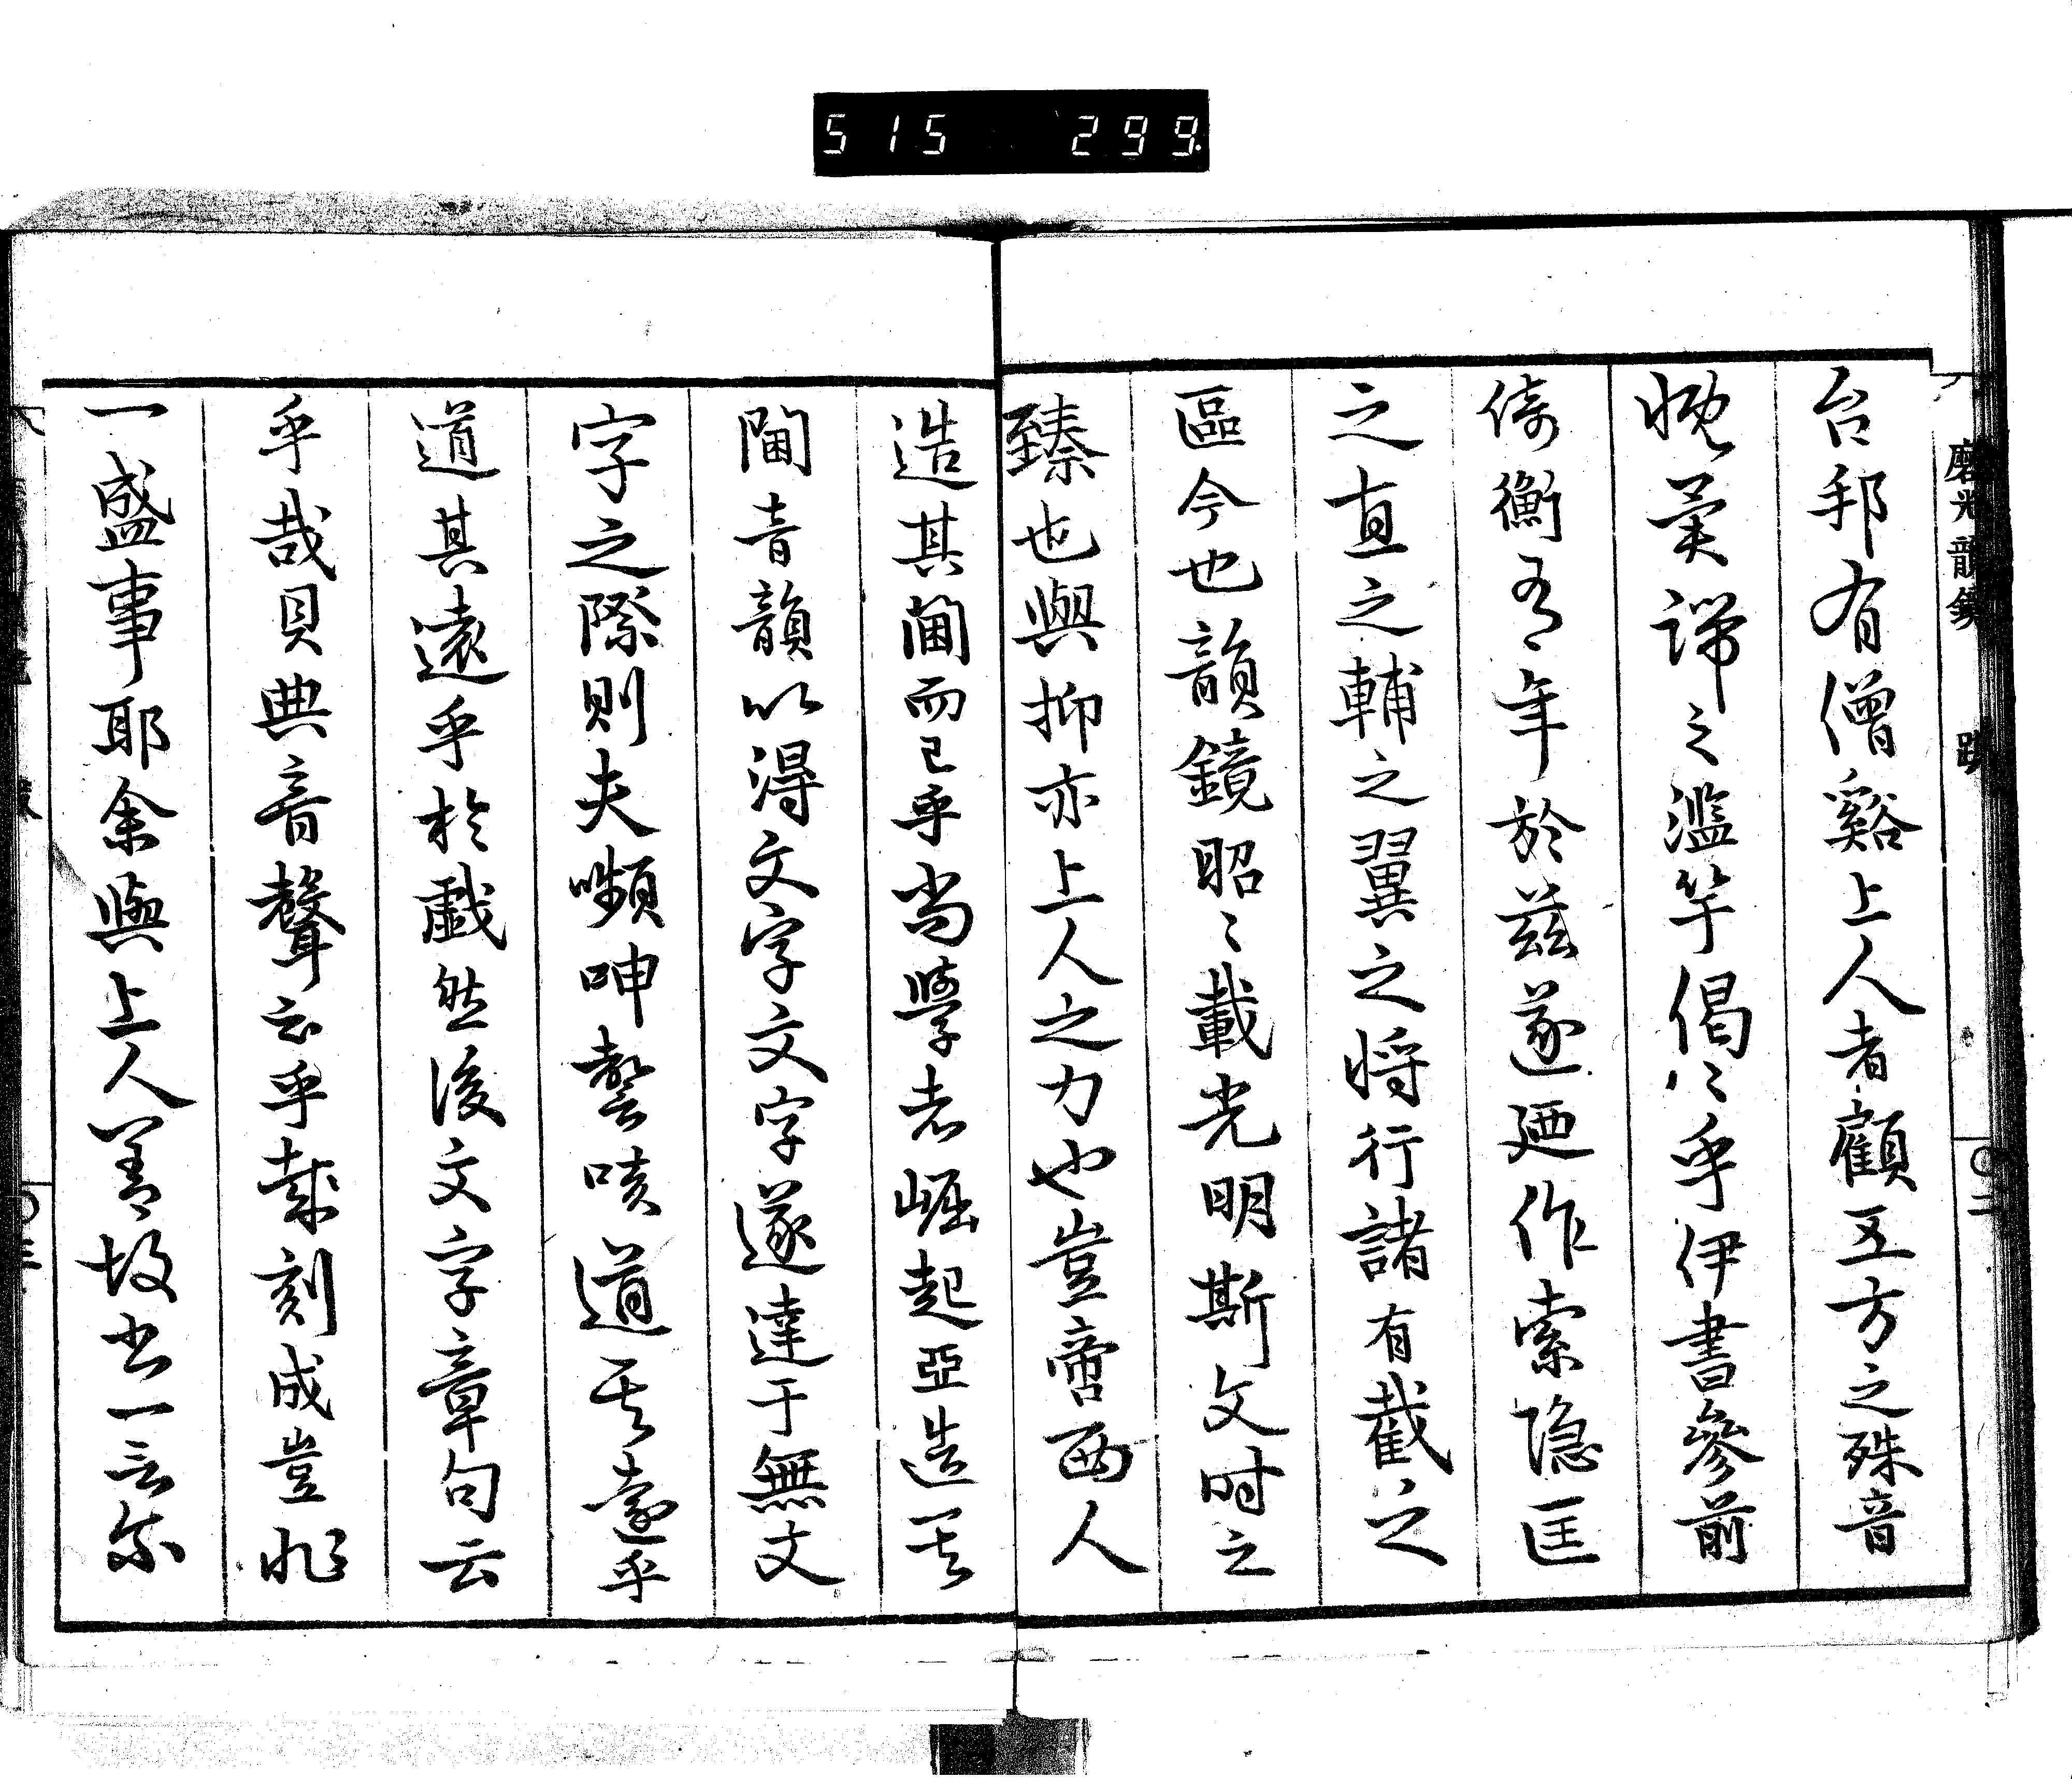 515 299
磨光韻鏡 跋 〇二
台邦有僧谿上人者顧五方之殊音
慨蒙諦之濫竽偈〻乎伊書參前
倚衡有年於茲遂廼作索隱匡
之直之輔之翼之將行諸有截之
區今也韻鏡昭〻載光明斯文時之
臻也與抑亦上人之力也豈啻西人
造其閫而已乎當學者崛起亞造其
閫音韻以得文字文字遂達于無文
字之際則夫嚬呻謦咳道其遠乎
道其遠乎於戲然後文字章句云
乎哉貝典音聲云乎哉刻成豈非
一盛事耶余與上人善故出一言爾